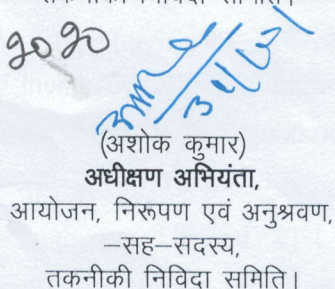 2020
(अशोक कुमार)
अधीक्षण अभियंता,
आयोजन, निरूपण एवं अनुश्रवण,
–सह–सदस्य,
तकनीकी निविदा समिति।